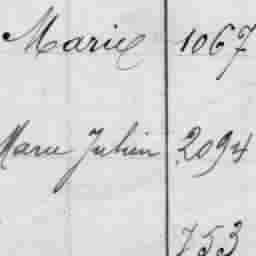 Marie 1067
Marie Julien 2094
753